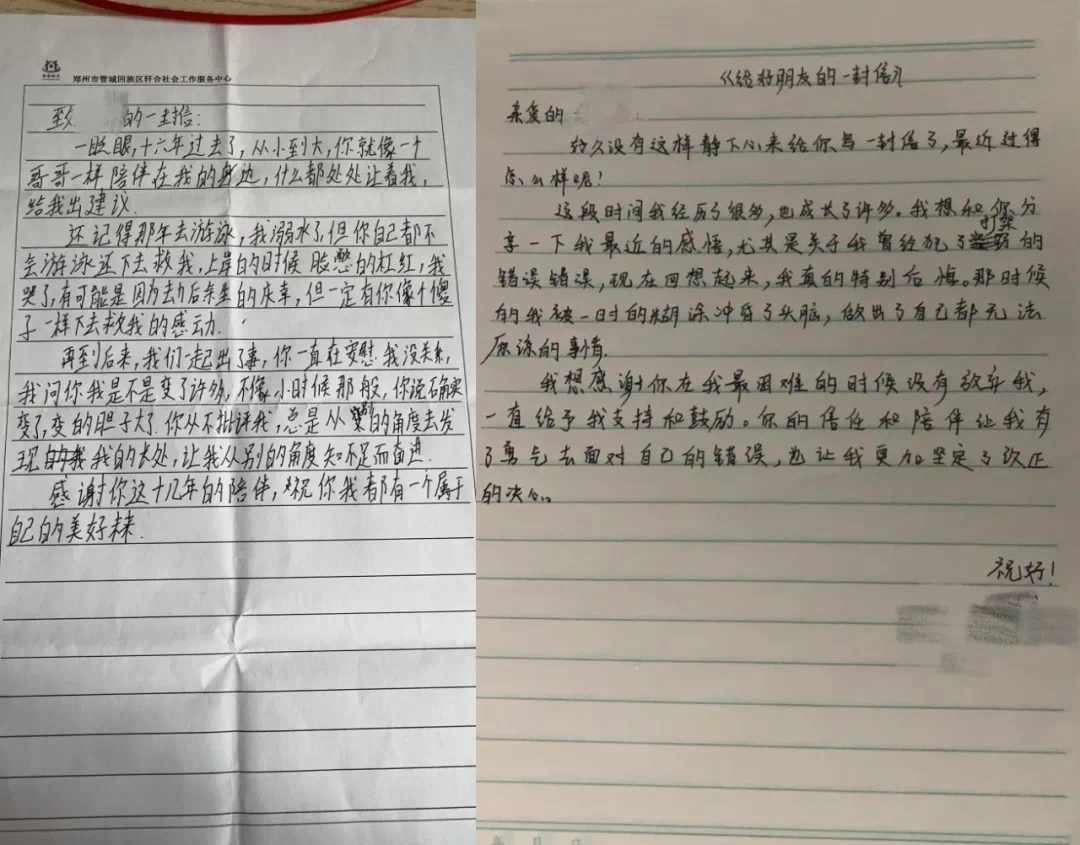 郑州市管城回族区轩合社会工作服务中心
致 的一封信:
一眨眼,十六年过去了,从小到大,你就像一个
哥哥一样陪伴在我的身边,什么都处处让着我,
给我出建议.
还记得那年去游泳,我溺水了,但你自己都不
会游泳还下去救我,上岸的时候脸憋的杠红,我
哭了,有可能是因为劫后余生的庆幸,但一定有你像个傻
子一样下去救我的感动.
再到后来,我们一起出了事,你一直在安慰我没关系,
我问你我是不是变了许多,不像小时候那般,你说确实
变了,变的胆子大了.你从不批评我,总是从 的角度去发
现我的长处,让我从别的角度知不足而奋进.
感谢你这十几年的陪伴,祝你我都有一个属于
自己的美好未来.
《给好朋友的一封信》
亲爱的
好久没有这样静下心来给你写一封信了,最近过得
怎么样呢!
这段时间我经历了很多,也成长了许多。我想和你分
享一下我最近的感悟,尤其是关于我曾经犯了打架的
错误错误,现在回想起来,我真的特别后悔。那时候
的我被一时的糊涂冲昏了头脑,做出了自己都无法
原谅的事情.
我想感谢你在我最困难的时候没有放弃我,
一直给予我支持和鼓励。你的信任和陪伴让我有
了勇气去面对自己的错误,也让我更加坚定了改正
的决心。
祝好!